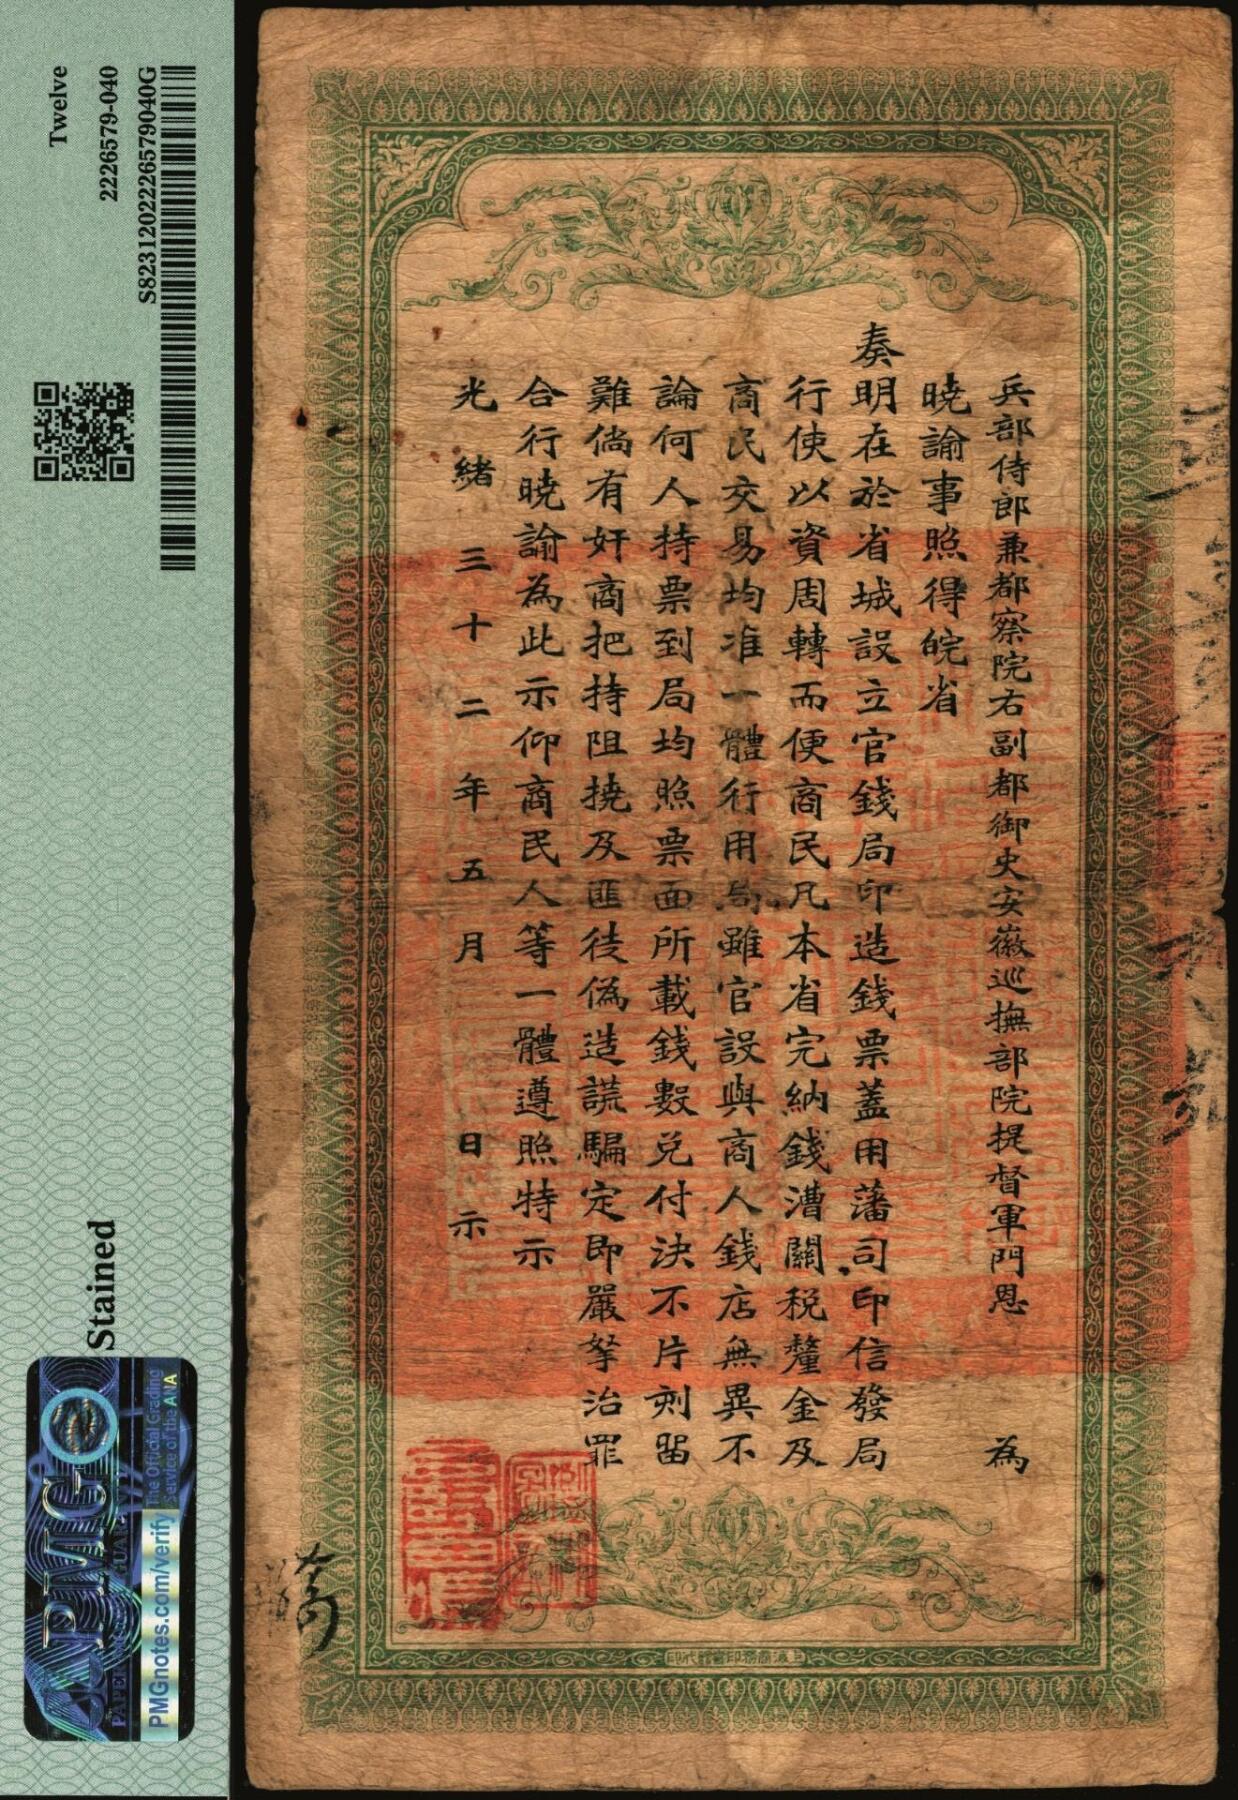 兵部侍郎兼都察院右副都御史安徽巡撫部院提督軍門恩 為
曉諭事照得皖省
奏明在於省城設立官錢局印造錢票蓋用藩司印信發局
行使以資周轉而便商民凡本省完納錢漕關稅釐金及
商民交易均准一體行用局雖官設與商人錢店無異不
論何人持票到局均照票面所載錢數兌付決不片刻留
難倘有奸商把持阻撓及匪徒偽造謊騙定即嚴拏治罪
合行曉諭為此示仰商民人等一體遵照特示
光緒三十二年五月 日示
上海商務印書館代印
Twelve
2226579-040
S8231202226579040G
Stained
PMG
PAPER MONEY GUARANTY
The Official Grading Service of the ANA
PMGnotes.com/verify